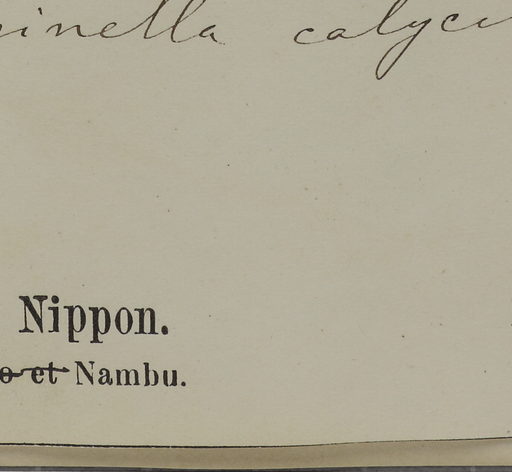 inella calyci
Nippon.
o et Nambu.